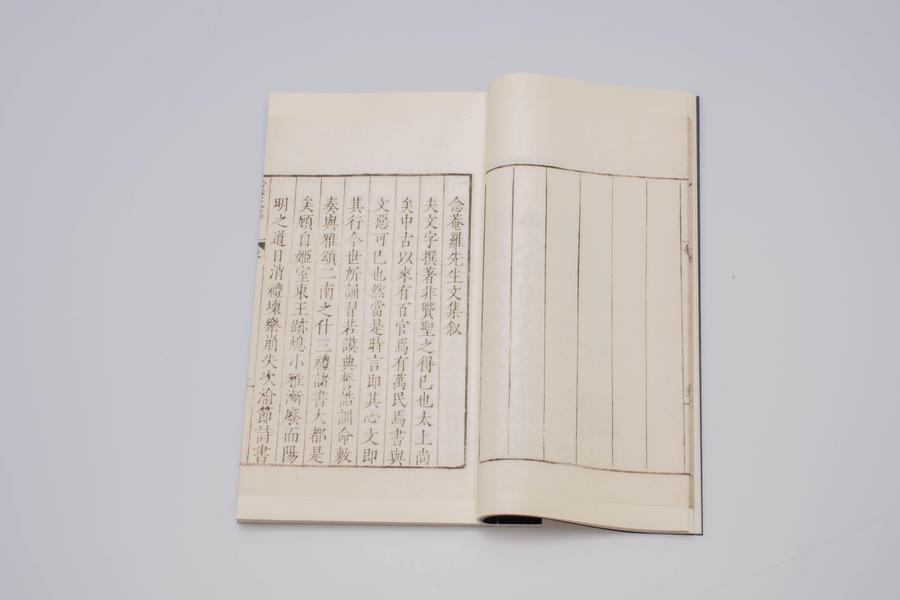 念菴羅先生文集叙
夫文字撰著非賢聖之得已也太上尚
矣中古以來有百官焉有萬民焉書與
文惡可已也然當是時言即其心文即
其行今世所誦習若謨典誓誥訓命數
奏與雅頌二南之什三禮諸書大都是
矣顧自姬室東王跡熄小雅漸廢而陽
明之道日消禮壞樂崩失次渝節詩書